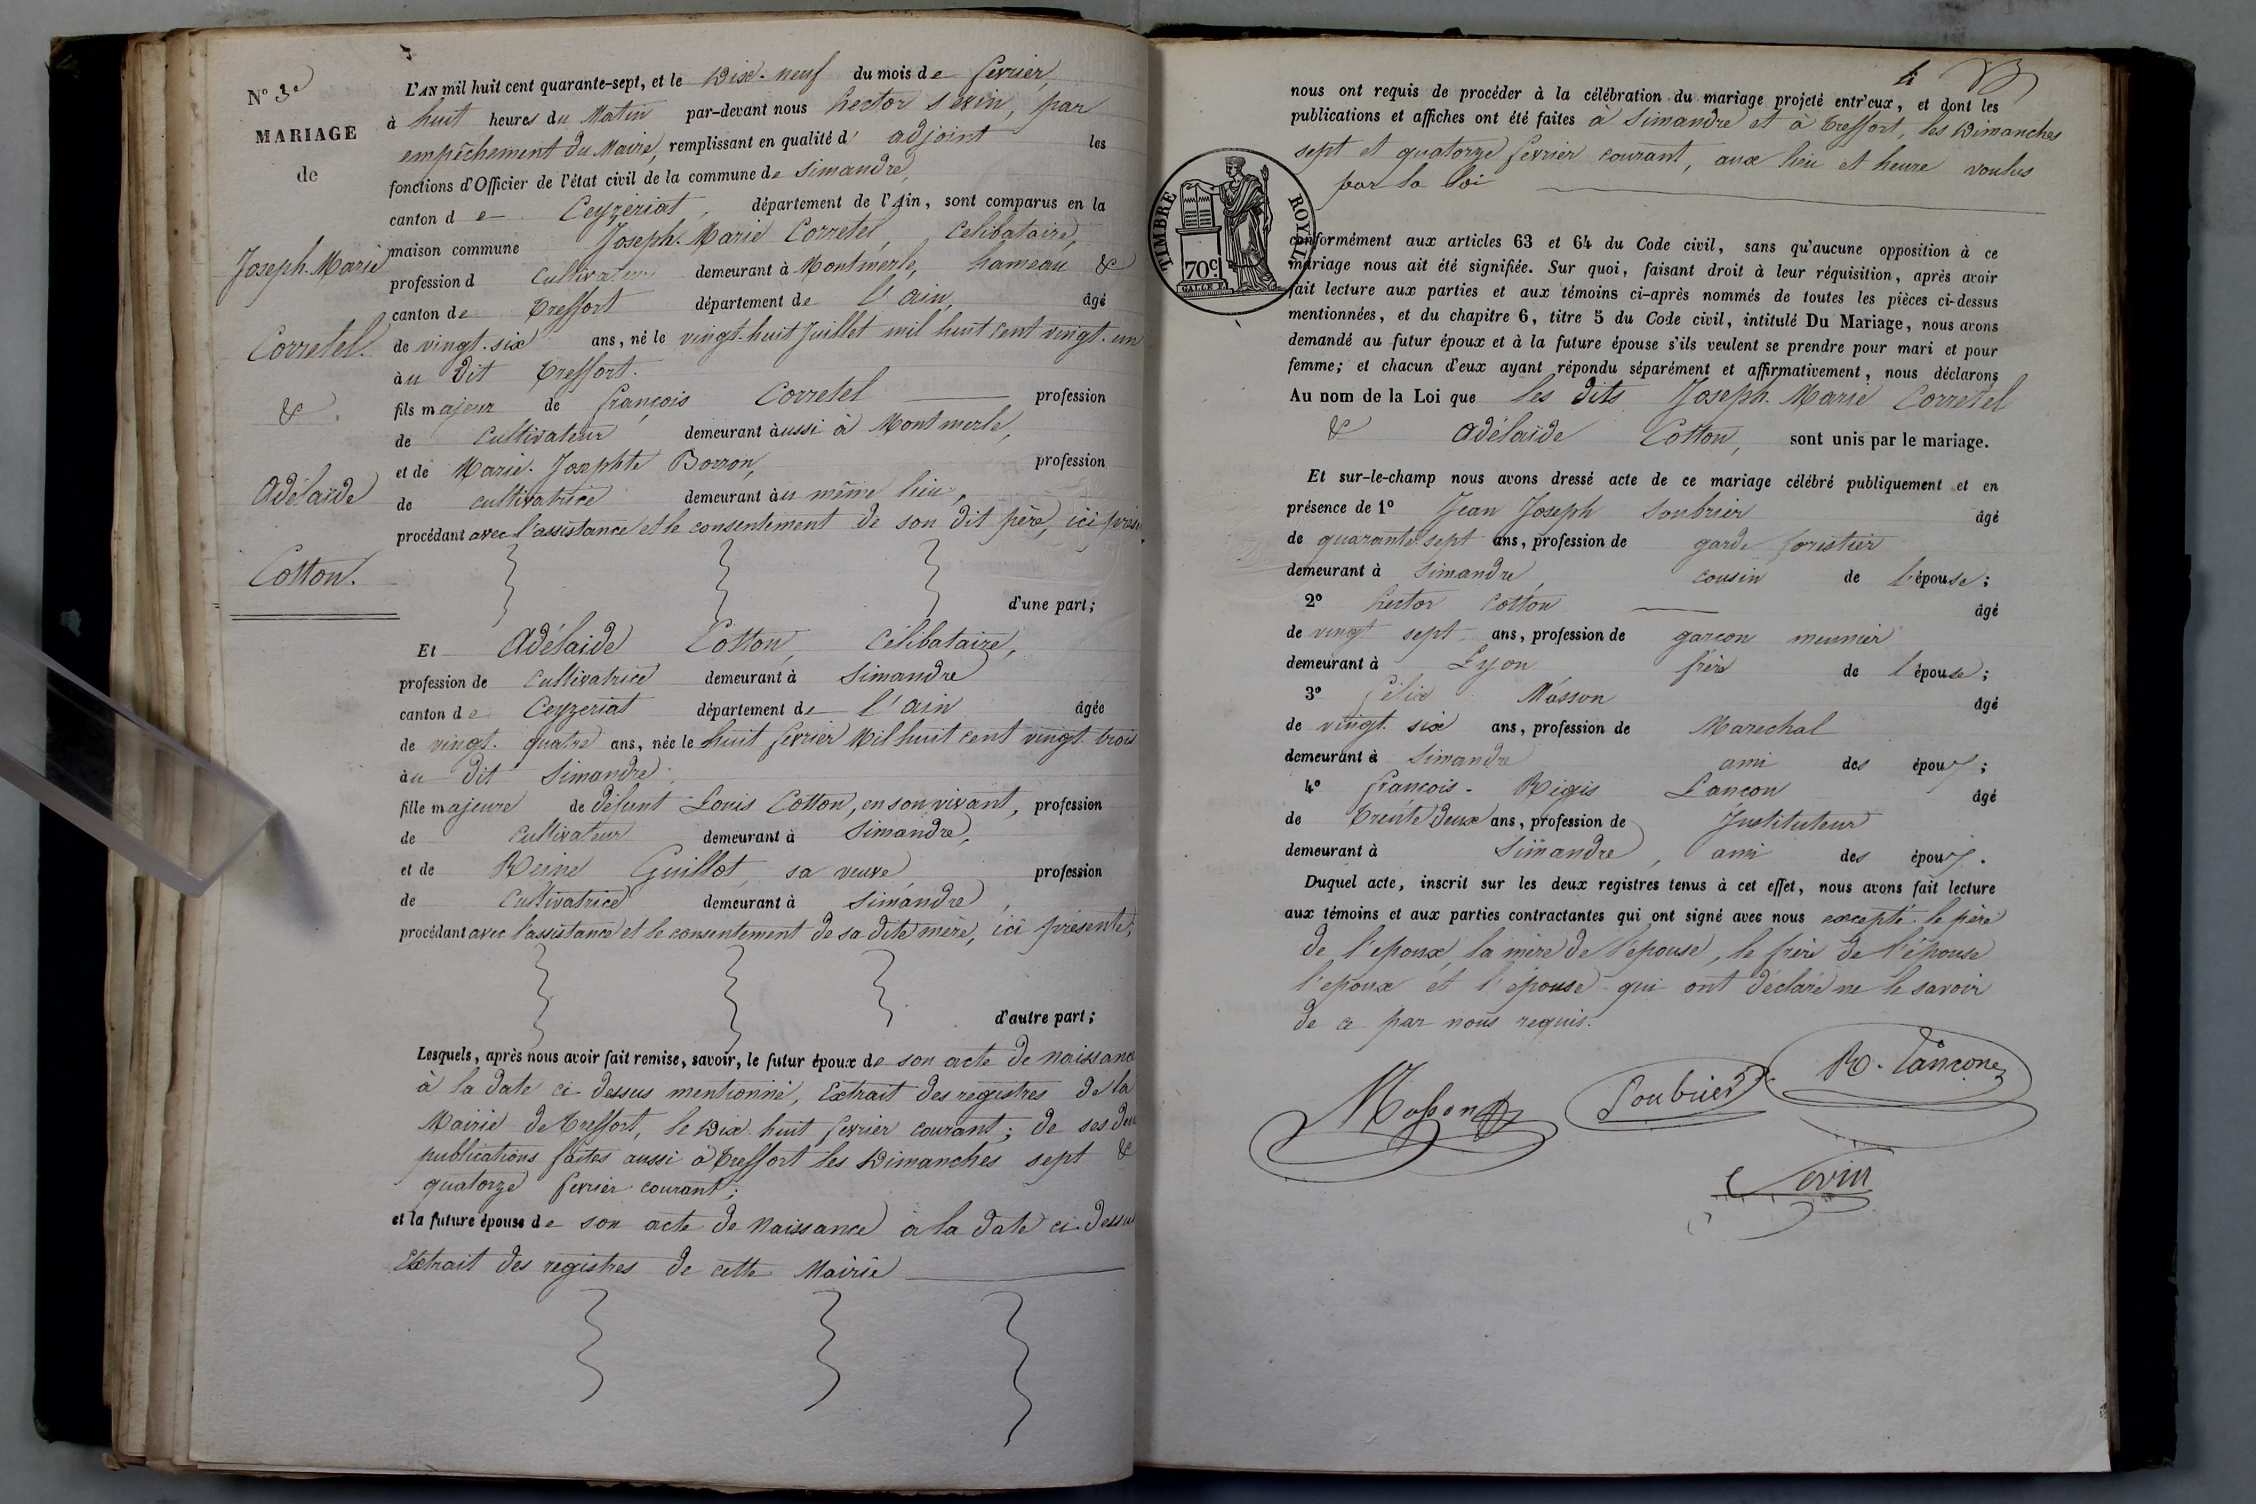 N.º 3e
MARIAGE
de
Joseph-Marie
Corretel.
&
Adélaïde
Cotton.
L'AN mil huit cent quarante-sept, et le Dix-neuf du mois de février,
à huit heures du Matin par-devant nous hector sevin, par
empêchement du Maire, remplissant en qualité d' adjoint les
fonctions d'Officier de l'état civil de la commune de Simandre,
canton de Ceyzeriat, département de l'Ain, sont comparus en la
maison commune Joseph-Marie Corretel, Celibataire,
profession d Cultivateur demeurant à Montmerle, hameau &
canton de Treffort département de l'ain, âgé
de vingt-six ans, né le vingt-huit Juillet mil huit cent vingt-un
àu dit Treffort.
fils majeur de françois Corretel profession
de Cultivateur demeurant àussi à Montmerle,
et de Marie-Josephte Borron, profession
de cultivatrice demeurant àu même lieu,
procédant avec l'assistance et le consentement de son dit père, ici prést.
d'une part;
Et Adélaïde Cotton, Célibataire,
profession de Cultivatrice demeurant à Simandre
canton de Ceyzeriat département de l'ain âgée
de vingt-quatre ans, née le huit février Mil huit cent vingt-trois
àu dit Simandre.
fille majeure de défunt Louis Cotton, en son vivant, profession
de cultivateur demeurant à Simandre,
et de Reine Guillot, sa veuve, profession
de Cultivatrice demeurant à Simandre,
procédant avec l'assistance et le consentement de sa dite mère, ici présente,
d'autre part;
Lesquels, après nous avoir fait remise, savoir, le futur époux de son acte de naissance
à la date ci dessus mentionné, Extrait des registres de la
Mairie de Treffort, le Dix-huit février courant; de ses deux
publications faites aussi à Treffort les Dimanches sept &
quatorze fevrier courant;
et la future épouse de son acte de Naissance à la date ci-dessus
Extrait des registres de cette Mairie
4
nous ont requis de procéder à la célébration du mariage projeté entr'eux, et dont les
publications et affiches ont été faites à Simandre et à Treffort, les Dimanches
sept et quatorze février courant, aux lieu et heure voulus
par la loi
TIMBRE ROYAL
70c
conformément aux articles 63 et 64 du Code civil, sans qu'aucune opposition à ce
mariage nous ait été signifiée. Sur quoi, faisant droit à leur réquisition, après avoir
fait lecture aux parties et aux témoins ci-après nommés de toutes les pièces ci-dessus
mentionnées, et du chapitre 6, titre 5 du Code civil, intitulé Du Mariage, nous avons
demandé au futur époux et à la future épouse s'ils veulent se prendre pour mari et pour
femme; et chacun d'eux ayant répondu séparément et affirmativement, nous déclarons
Au nom de la Loi que les dits Joseph-Marie Corretel
& Adélaïde Cotton, sont unis par le mariage.
Et sur-le-champ nous avons dressé acte de ce mariage célébré publiquement et en
présence de 1º Jean Joseph Soubrier âgé
de quarante-sept ans, profession de garde forestier
demeurant à Simandre, cousin de l'épouse;
2º hector Cotton âgé
de vingt sept ans, profession de garcon meunier
demeurant à Lyon frère de l'épouse;
3º félix Masson âgé
de vingt-six ans, profession de Marechal
demeurant à Simandre ami des époux;
4º françois-Régis Lancon âgé
de Trente Deux ans, profession de Instituteur
demeurant à Simandre, ami des époux.
Duquel acte, inscrit sur les deux registres tenus à cet effet, nous avons fait lecture
aux témoins et aux parties contractantes qui ont signé avec nous excepté le père
de l'epoux, la mère de l'épouse, le frère de l'épouse
l'epoux et l'épouse qui ont déclaré ne le savoir
de ce par nous requis.
Masson Soubrier R. Lançon
Sevin